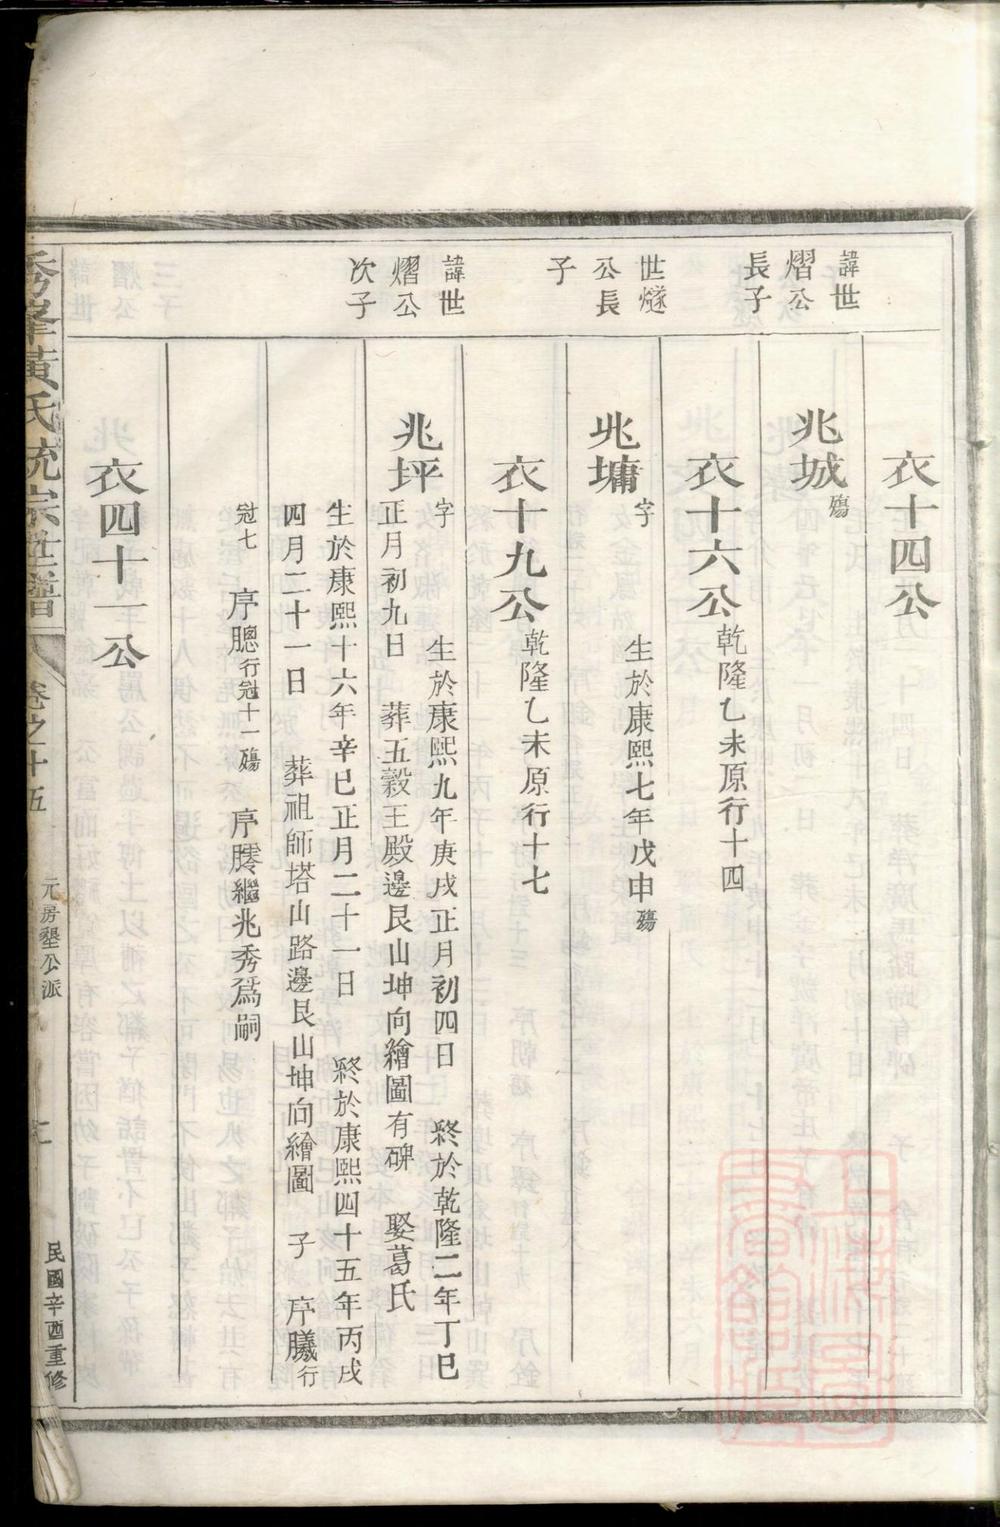 衣十四公
諱世
熠公
長子
兆城殤
衣十六公乾隆乙未原行十四
世燧
公長
子
兆墉字 生於康熙七年戊申殤
衣十九公乾隆乙未原行十七
諱世
熠公
次子
兆坪字 生於康熙九年庚戌正月初四日 終於乾隆二年丁巳
正月初九日 葬五穀王殿邊艮山坤向繪圖有碑 娶葛氏
生於康熙十六年辛巳正月二十一日 終於康熙四十五年丙戌
四月二十一日 葬祖師塔山路邊艮山坤向繪圖 子 序曦行
冠七 序聰行冠十一殤 序騰繼兆秀爲嗣
衣四十一公
秀峯黃氏統宗世譜 卷之十五 元房墾公派 民國辛酉重修